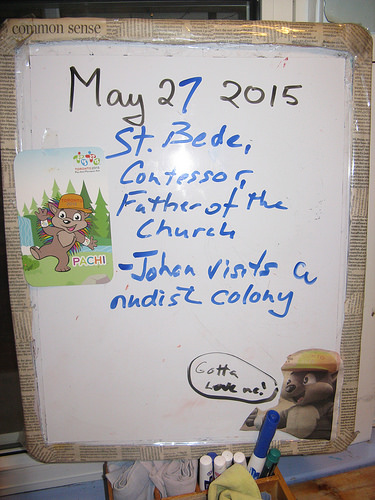 common sense
May 27 2015
St. Bede,
Contessor,
Father of the
Church
-Johan visits a
nudist colony
PACHI
Gotta
Love me!